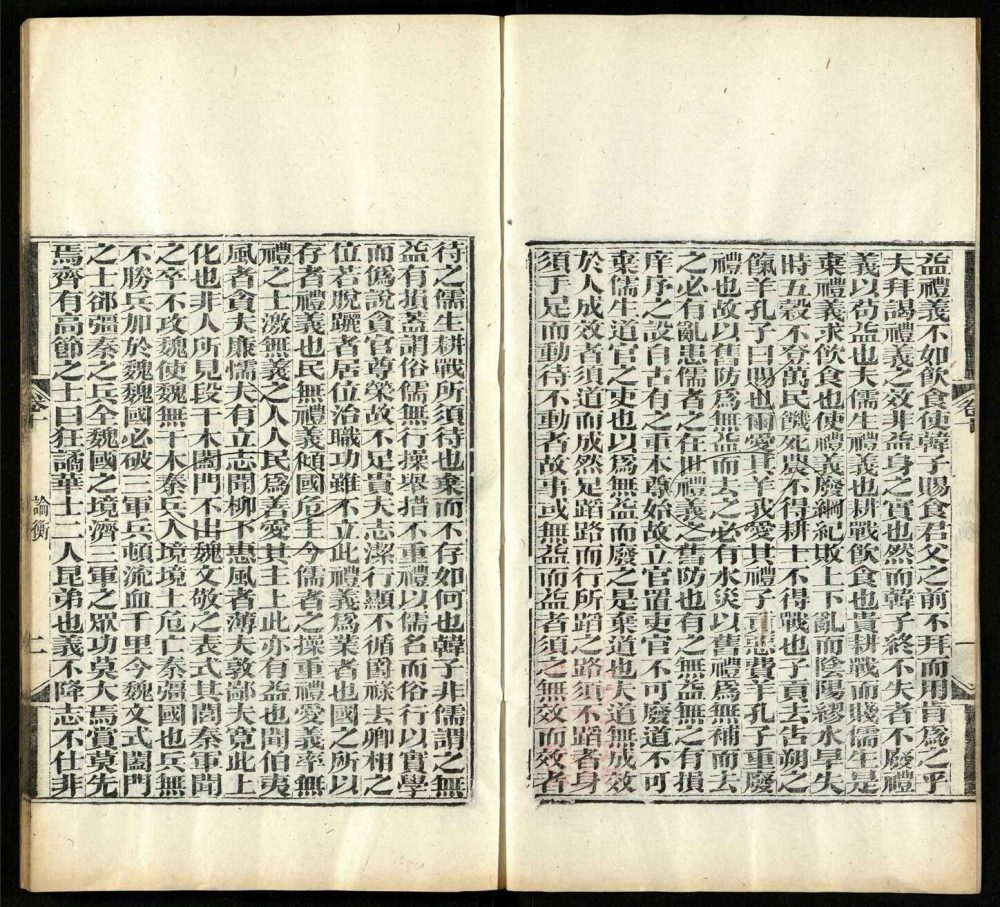 益禮義不如飲食使韓子賜食君父之前不拜而用肯爲之乎
夫拜謁禮義之效非益身之實也然而韓子終不失者不廢禮
義以苟益也夫儒生禮義也耕戰飲食也貴耕戰而賤儒生是
棄禮義求飲食也使禮義廢綱紀敗上下亂而陰陽繆水旱失
時五穀不登萬民饑死農不得耕士不得戰也子貢去吿朔之
餼羊孔子曰賜也爾愛其羊我愛其禮子貢惡費羊孔子重廢
禮也故以舊防爲無益而去之必有水災以舊禮爲無補而去
之必有亂患儒者之在世禮義之舊防也有之無益無之有損
庠序之設自古有之重本尊始故立官置吏官不可廢道不可
棄儒生道官之吏也以爲無益而廢之是棄道也夫道無成效
於人成效者須道而成然足蹈路而行所蹈之路須不蹈者身
須手足而動待不動者故事或無益而益者須之無效而效者
卷十
一
待之儒生耕戰所須待也棄而不存如何也韓子非儒謂之無
益有損蓋謂俗儒無行操舉措不重禮以儒名而俗行以實學
而僞說貪官尊榮故不足貴夫志潔行顯不徇爵祿去卿相之
位若脫躧者居位治職功雖不立此禮義爲業者也國之所以
存者禮義也民無禮義傾國危主今儒者之操重禮愛義率無
禮之士激無義之人人民爲善愛其主上此亦有益也聞伯夷
風者貪夫廉懦夫有立志聞柳下惠風者薄夫敦鄙夫寬此上
化也非人所見段干木闔門不出魏文敬之表式其閭秦軍聞
之卒不攻魏使魏無干木秦兵入境境土危亡秦彊國也兵無
不勝兵加於魏魏國必破三軍兵頓流血千里今魏文式闔門
之士郤彊秦之兵全魏國之境濟三軍之眾功莫大焉賞莫先
焉齊有高節之士曰狂譎華士二人昆弟也義不降志不仕非
卷十
論衡
二